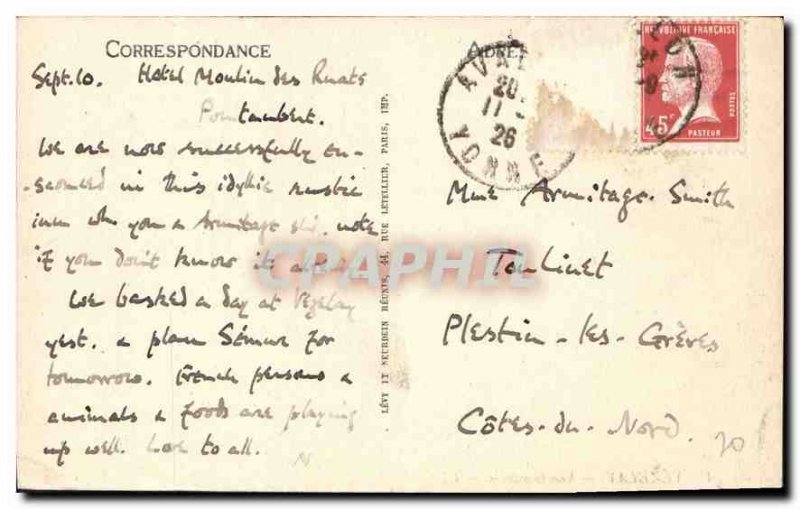 CORRESPONDANCE
Sept. 10. Hotel Moulin des Ruats
Pontaubert.
We are now successfully en-
-sconced in this idyllic rustic
inn wh. you & Armitage note
if you don't know it already
We basked a day at Vézelay
yest. & plan Sémur for
tomorrow. French persons &
animals & foods are playing
up well. Love to all.
LÉVY ET NEURDEIN RÉUNIS, 44, RUE LETELLIER, PARIS, IMP.
CPAPHIL
AVALLON
20
11 9
26
YONNE
RÉPUBLIQUE FRANÇAISE
45c
POSTES
PASTEUR
Mme Armitage-Smith
Toulinet
Plestin-les-Grèves
Côtes-du-Nord.
20